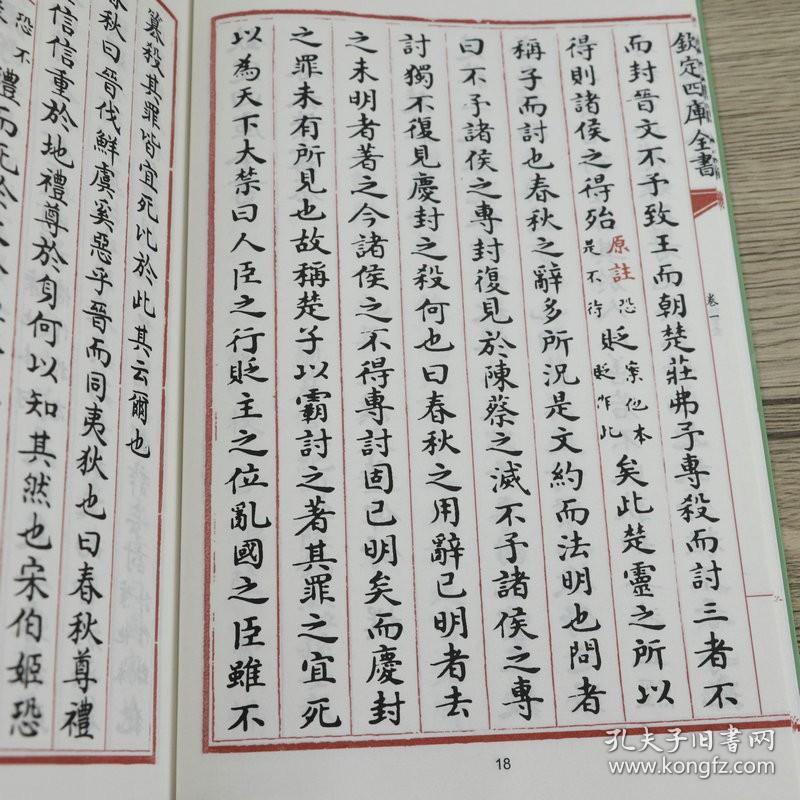 欽定四庫全書
卷一
而封晉文不予致王而朝楚莊弗予專殺而討三者不
得則諸侯之得殆原註恐是不貶案他本貶作此矣此楚靈之所以
稱子而討也春秋之辭多所況是文約而法明也問者
曰不予諸侯之專封復見於陳蔡之滅不予諸侯之專
討獨不復見慶封之殺何也曰春秋之用辭已明者去
之未明者著之今諸侯之不得專討固已明矣而慶封
之罪未有所見也故稱楚子以霸討之著其罪之宜死
以為天下大禁曰人臣之行貶主之位亂國之臣雖不
18
篡殺其罪皆宜死比於此其云爾也
春秋曰晉伐鮮虞奚惡乎晉而同夷狄也曰春秋尊禮
信信重於地禮尊於身何以知其然也宋伯姬恐
恐不禮而死於
孔夫子旧書网
www.kongfz.com